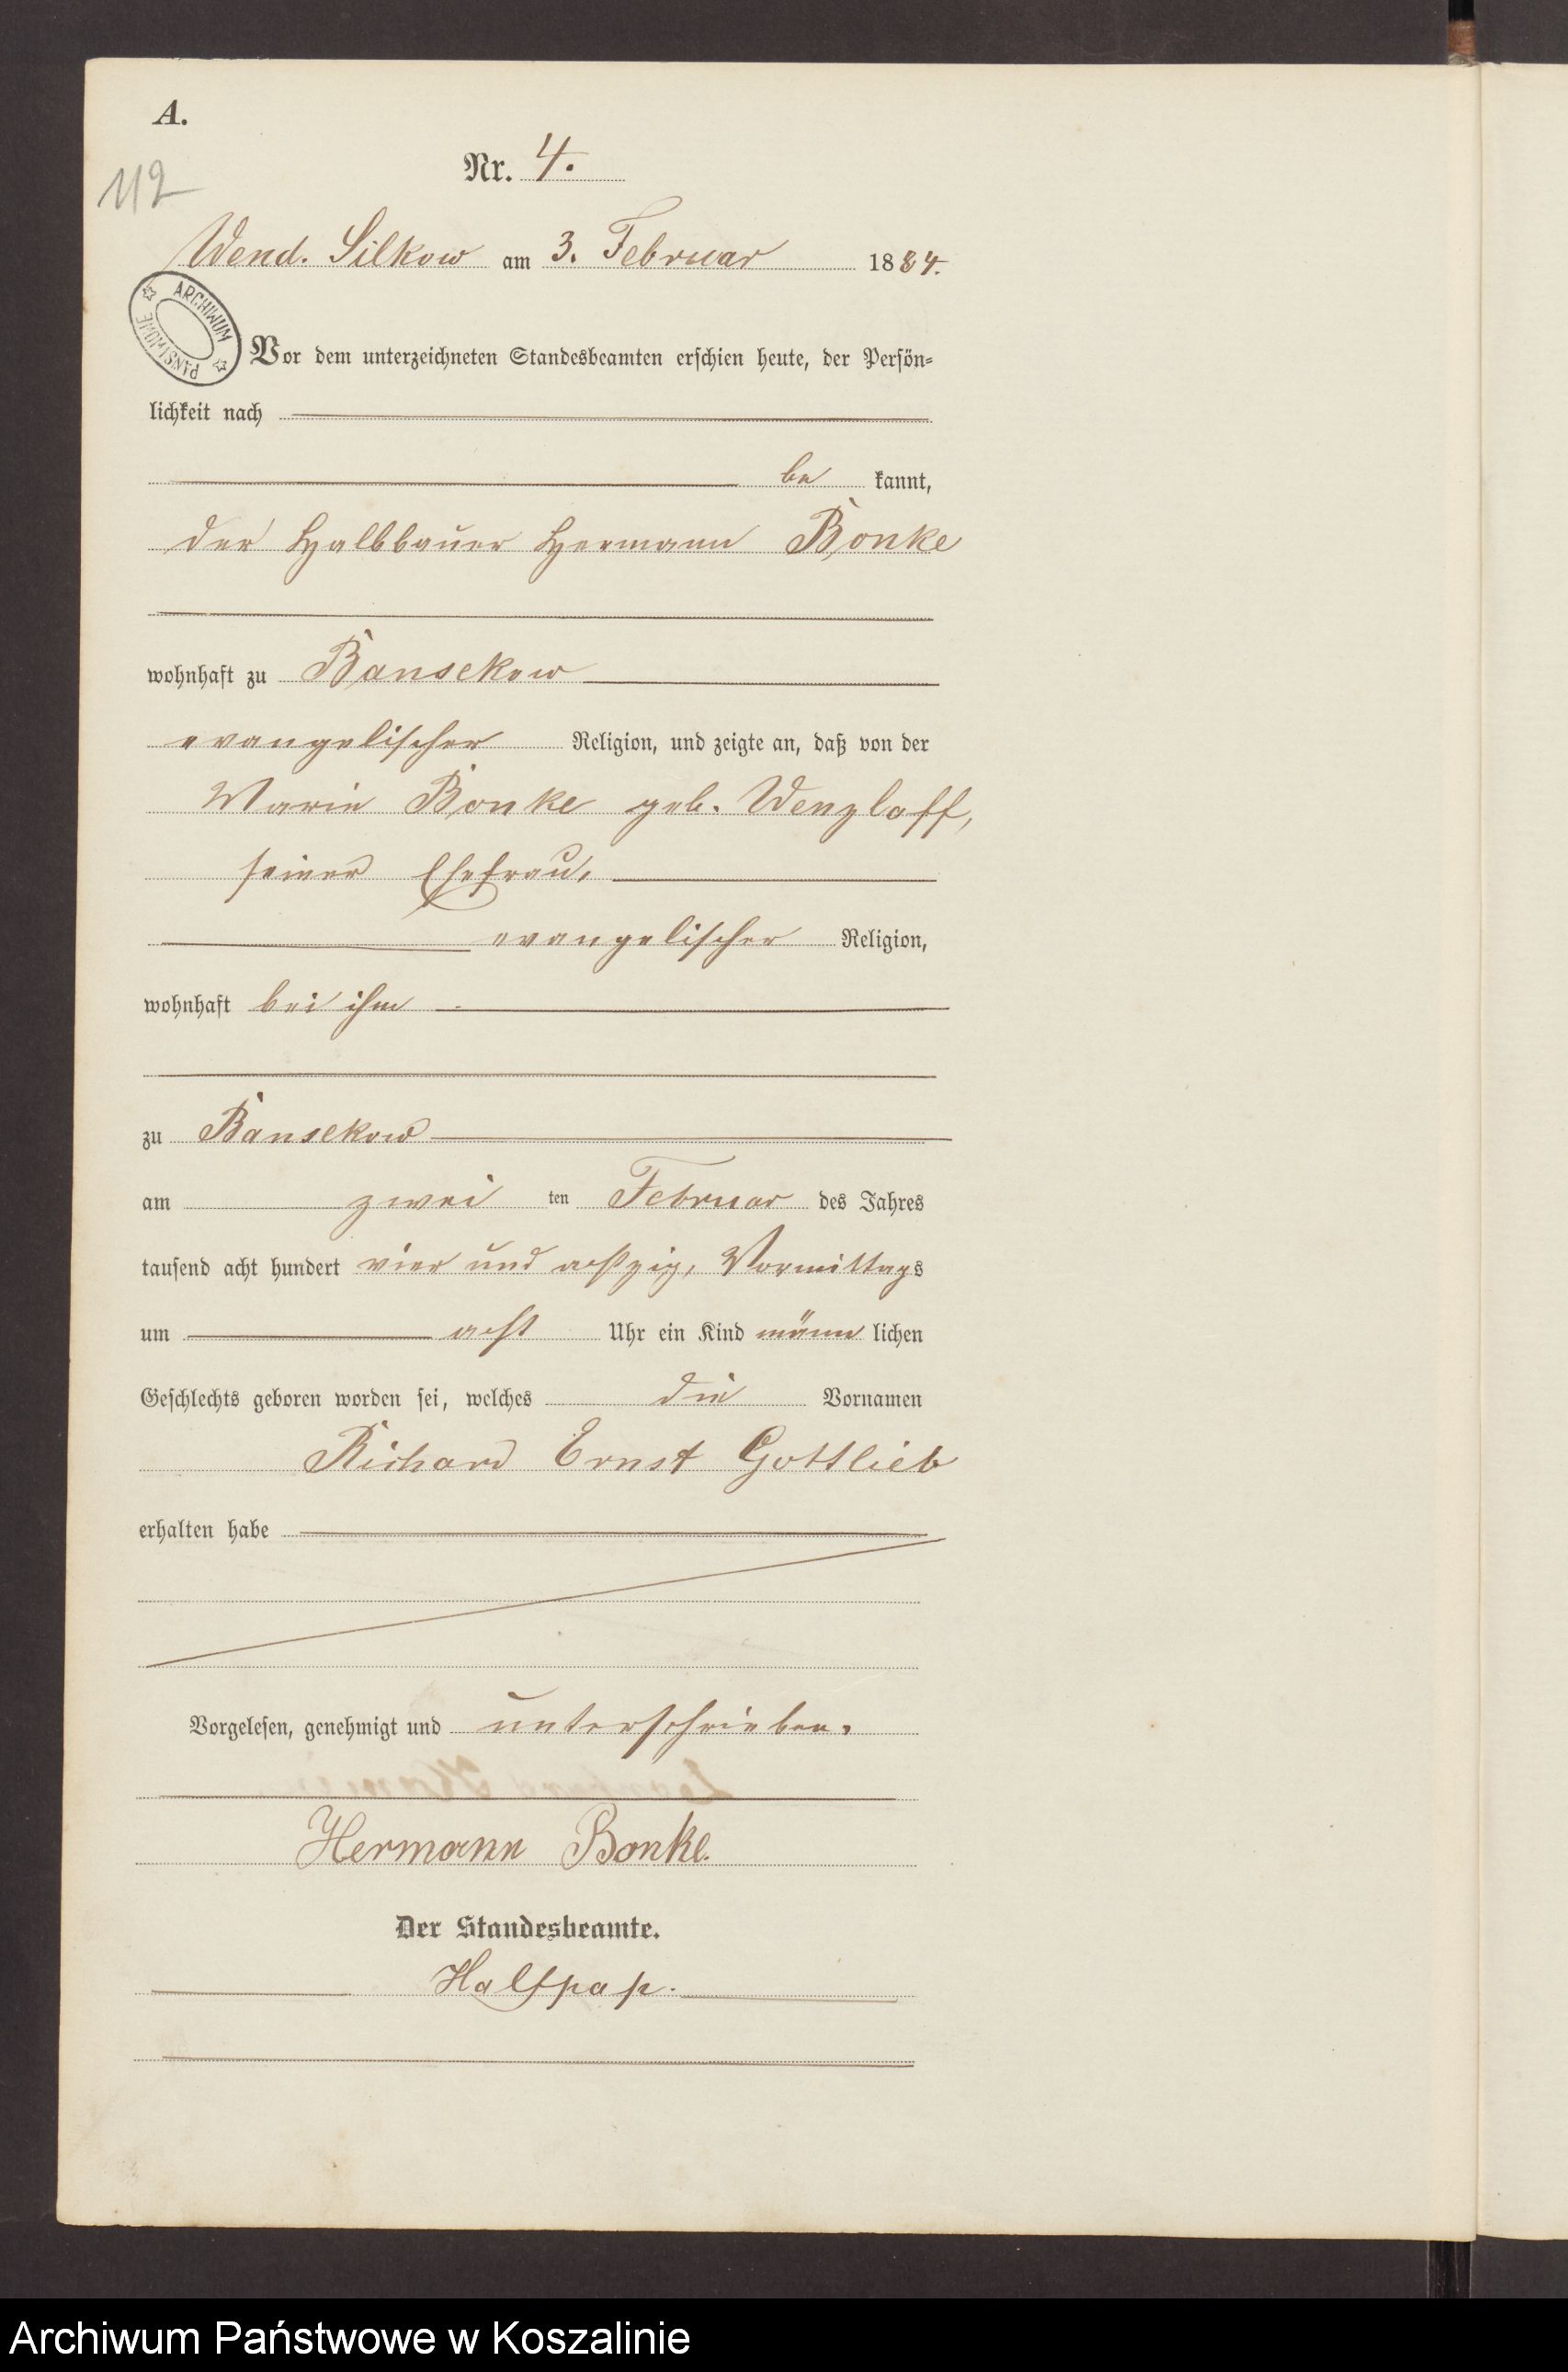 A.
112
Nr. 4.
Wend. Silkow am 3. Februar 1884.
ARCHIWUM PAŃSTWOWE
Vor dem unterzeichneten Standesbeamten erschien heute, der Persön=
lichkeit nach
be kannt,
der Halbbauer Hermann Bonke
wohnhaft zu Bansekow
evangelischer Religion, und zeigte an, daß von der
Marie Bonke geb. Wenzlaff,
seiner Ehefrau,
evangelischer Religion,
wohnhaft bei ihm
zu Bansekow
am zwei ten Februar des Jahres
tausend acht hundert vier und achtzig, Vormittags
um acht Uhr ein Kind männ lichen
Geschlechts geboren worden sei, welches die Vornamen
Richard Ernst Gottlieb
erhalten habe
Vorgelesen, genehmigt und unterschrieben.
Hermann Bonke.
Der Standesbeamte.
Halfpap.
Archiwum Państwowe w Koszalinie